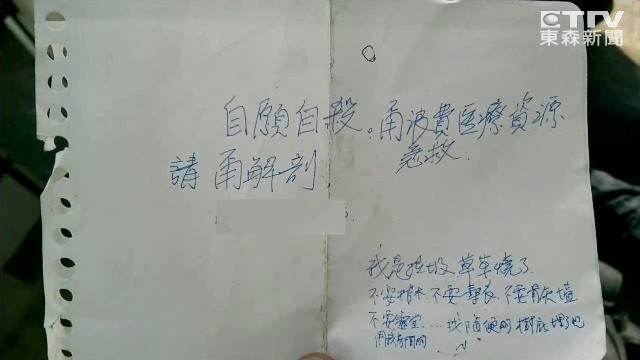 ETtV
東森新聞
自願自殺。甭波費医療資源
急救.
請 甭解剖
我是垃圾 草草燒了
不要棺木 不要壽衣 不要骨灰罈
不要靈堂... 找隨便的樹底埋了吧